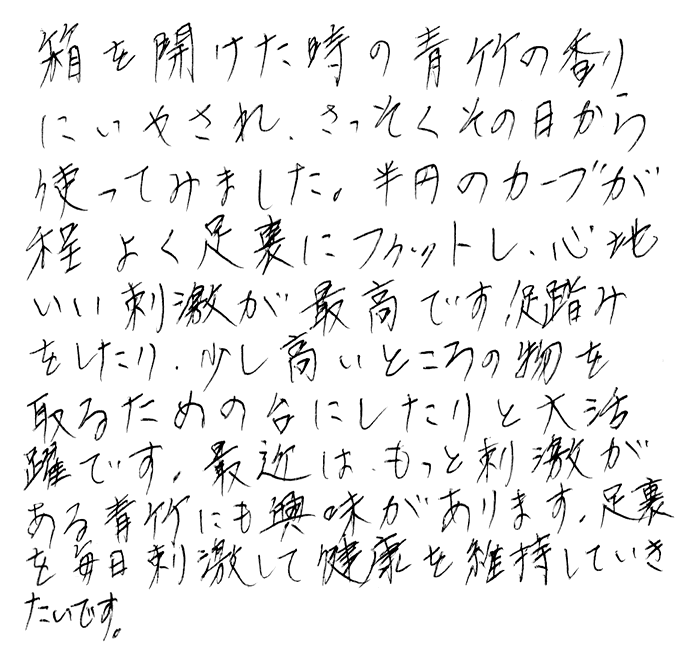 箱を開けた時の青竹の香り
にいやされ、さっそくその日から
使ってみました。半円のカーブが
程よく足裏にフィットし、心地
いい刺激が最高です!足踏み
をしたり、少し高いところの物を
取るための台にしたりと大活
躍です。最近は、もっと刺激が
ある青竹にも興味があります。足裏
を毎日刺激して健康を維持していき
たいです。